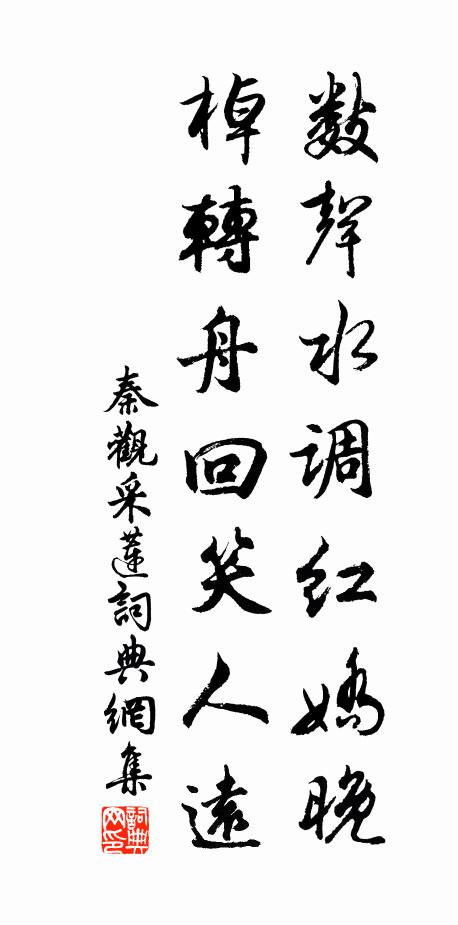 數聲水調紅嬌晚
棹轉舟回笑人遠
秦觀采蓮詞典網集
詞典网印